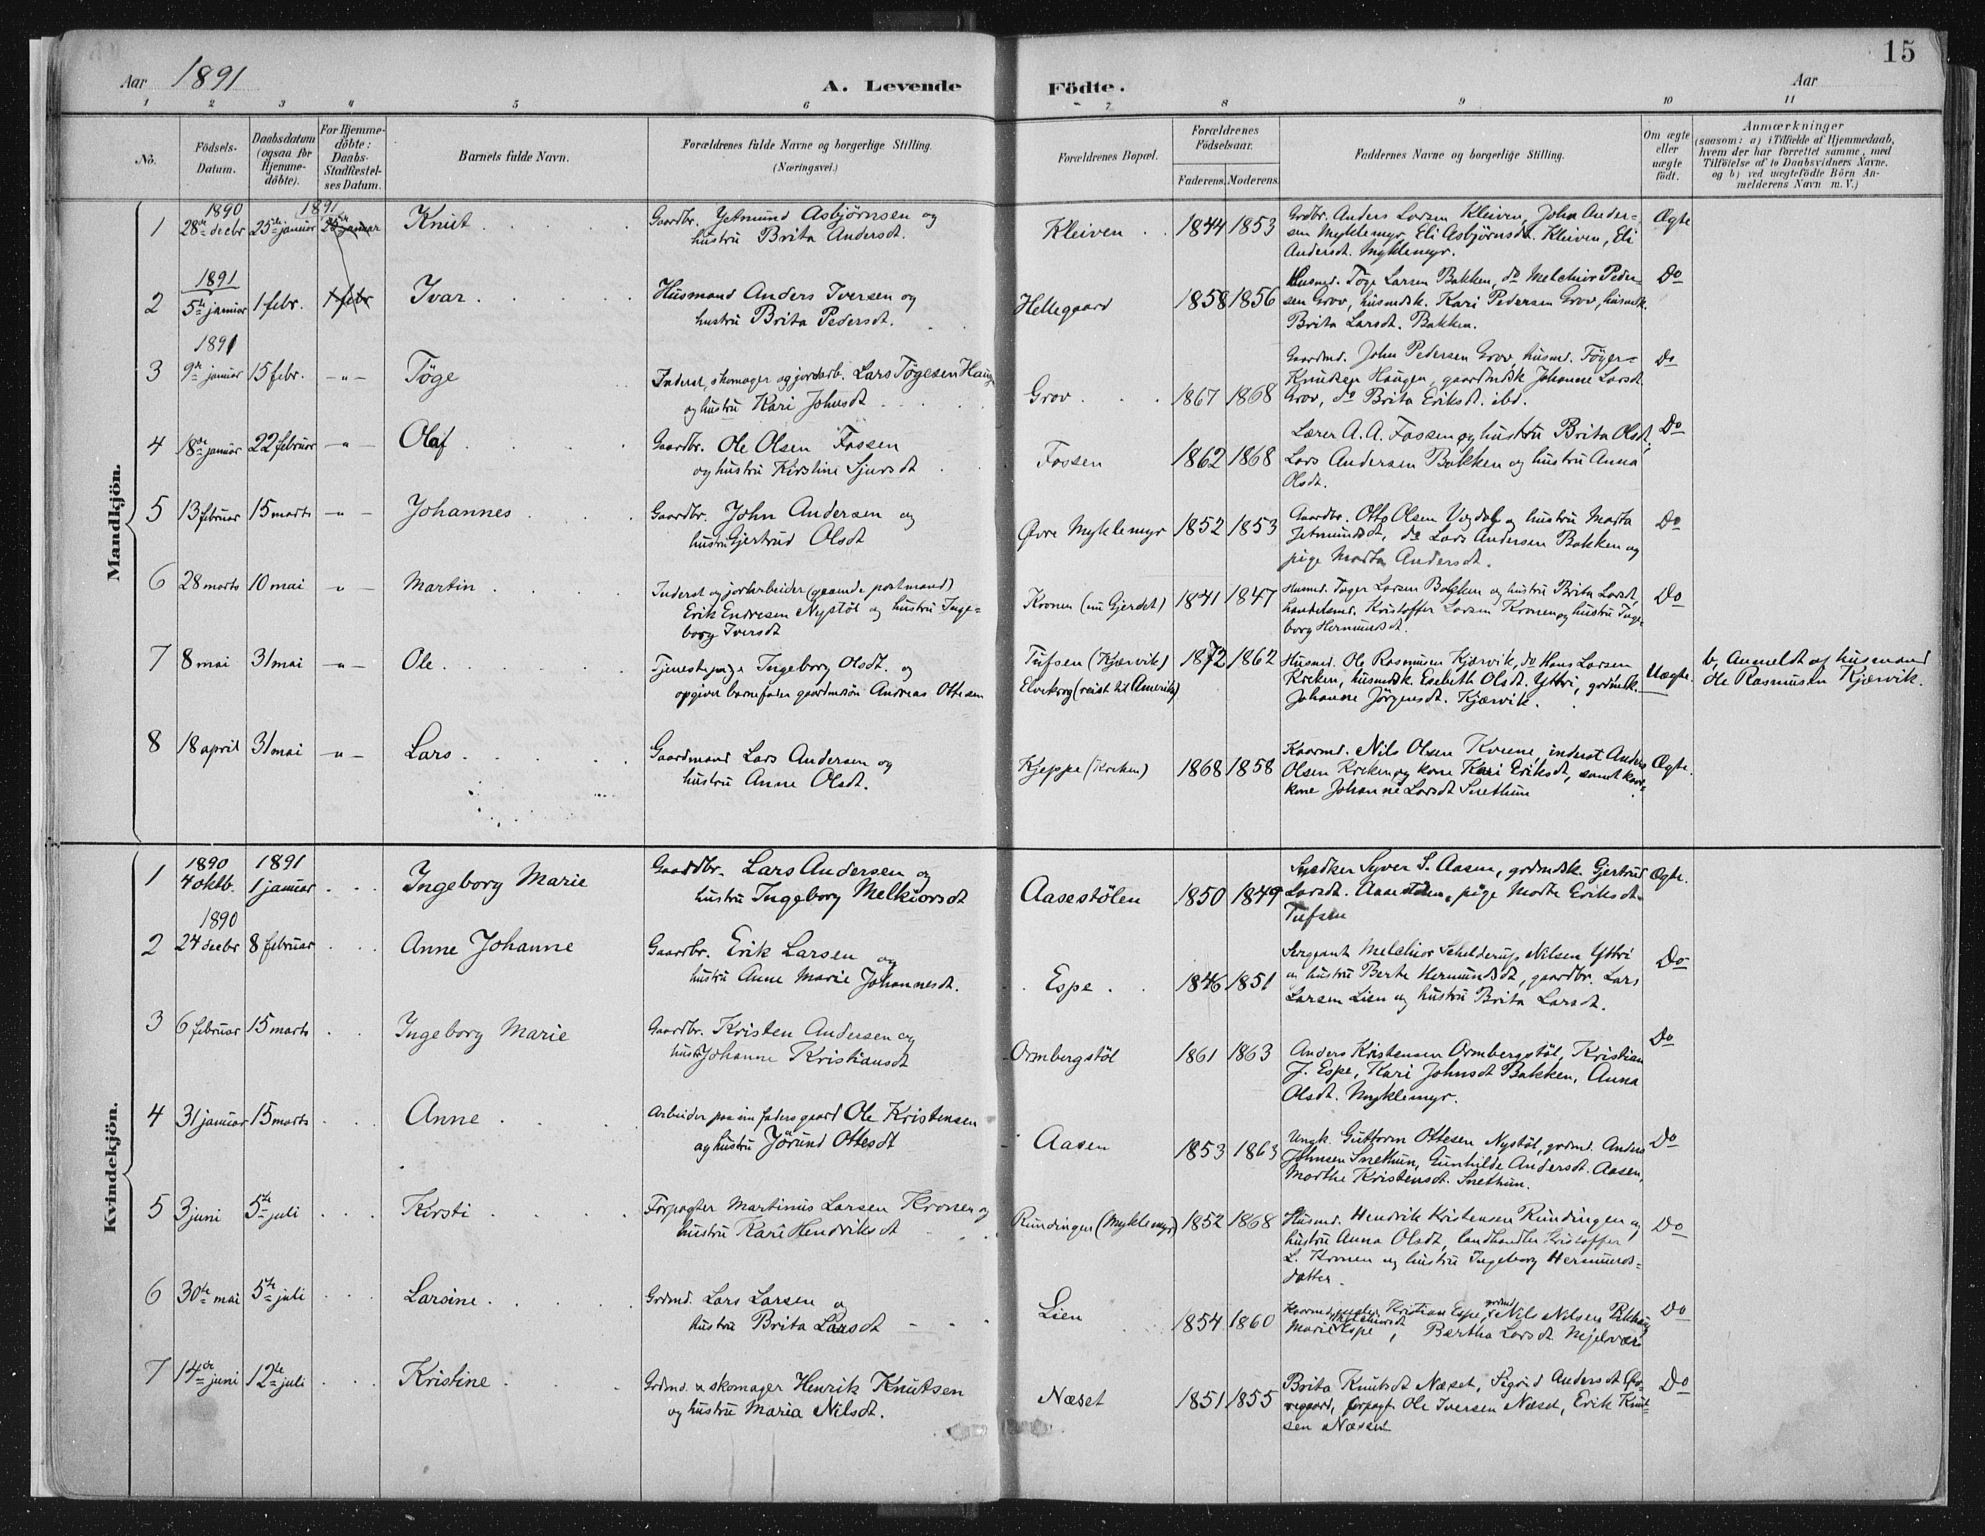 15
Aar 1891
A. Levende
Födte.
Aar
1 2 3 4 5 6 7 8 9 10 11
No.
Födsels-Datum.
Daabsdatum (ogsaa for Hjemme-döbte).
For Hjemme-döbte: Daabs-Stadfæstel-ses Datum.
Barnets fulde Navn.
Forældrenes fulde Navne og borgerlige Stilling.
(Næringsvei.)
Forældrenes Bopæl.
Forældrenes Födselsaar.
Faderens. Moderens.
Faddernes Navne og borgerlige Stilling.
Om ægte eller uægte födt.
Anmærkninger
(saasom: a) i Tilfælde af Hjemmedaab,
hvem der har forrettet samme, med
Tilföielse af to Daabsvidners Navne.
og b) ved uægtefödte Börn An-
melderens Navn m. V.)
Mandkjön.
1890 1891
1 28de decbr 25de januar 25de januar Knut
Gaardbr. Jetmund Asbjørnsen og
hustru Brita Andersdt.
Kleiven 1844 1853
Grdbr. Anders Larsen Kleiven, John Ander-
sen Myklemyr, Eli Asbjørnsdt. Kleiven, Eli
Andersdt. Myklemyr.
Ægte
1891
2 5te januar 1 febr. 1 febr Ivar
Husmand Anders Iversen og
hustru Brita Pedersdt.
Hellegaard 1858 1856
Husmd. Töge Larsen Bakken, do Melchior Peder-
sen Grov, husmdsk. Kari Pedersen Grov, husmdk.
Brita Larsdt. Bakken.
Do
1891
3 9de januar 15 febr. -"- Töge
Inderst, skomager og jordarb. Lars Tögesen Haug
og hustru Kari Johnsdt
Grov 1867 1868
Gaardmd. John Pedersen Grov, husmd. Töger
Knudsen Haugen, gaardmdsk Johanne Larsdt.
Grov, do Brita Eriksdt. ibd.
Do
4 18de januar 22 februar -"- Olaf
Gaardbr. Ole Olsen Fossen
og hustru Kirstine Sjursdt
Fossen 1862 1868
Lærer A. A. Fossen og hustru Brita Olsdt,
Lars Andersen Bakken og hustru Anna
Olsdt.
Do
5 13 februar 15 marts -"- Johannes
Gaardbr. John Andersen og
hustru Gjertrud Olsdt
Øvre Myklemyr 1852 1853
Gaardbr. Otto Olsen og hustru Marta
Jetmundsdt, do Lars Andersen Bakken og
pige Marta Andersdt.
Do
6 28 marts 10 mai -"- Martin
Inderst og jordarbeider (gaaende postmand)
Erik Endresen Nystöl og hustru Inge-
borg Iversdt
Kronen (nu Gjerdet) 1841 1847
Husmd. Töger Larsen Bakken og hustru Brita Larsdt,
handelsmd. Kristoffer Larsen Kronen og hustru Inge-
borg Hermundsdt.
Do
7 8 mai 31 mai -"- Ole
Tjenestepige Ingeborg Olsdt. og
opgiven barnefader gaardmdsön Andreas Ottesen
Tufsen (Kjærvik)
Elvekrog (reist til Amerika)
1872 1862
Husmd. Ole Rasmussen Kjærvik, do Hans Larsen
Kreken, husmdsk. Elsebeth Olsdt. Yttri, grdmdsk.
Johanne Jörgensdt. Kjærvik.
Uægte.
b, Anmeldt af husmand
Ole Rasmussen Kjærvik.
8 18 april 31 mai -"- Lars
Gaardmand Lars Andersen og
hustru Anne Olsdt.
Kjeppe (Kreken) 1868 1858
Kaarmd. Nils Olsen Kveene, inderst Anders
Olsen Kreken og kone Kari Eriksdt, samt kaar-
kone Johanne Larsdt Snethun
Ægte.
Kvindekjön.
1890 1891
1 4 oktb. 1 januar Ingeborg Marie
Gaardbr. Lars Andersen og
hustru Ingeborg Melkiorsdt
Aasestölen 1850 1849
Syver S. Aasen, grdmdsk. Gjertrud
Larsdt. Aasestölen, pige Marte Eriksdt.
Tufsen
Ægte.
1890
2 24 decbr 8 februar Anne Johanne
Gaardbr. Erik Larsen og
hustru Anne Marie Johannesdt.
Espe 1846 1851
Sergeant Melchior Schelderup Nilsen Yttri
og hustru Berte Hermundsdt, gaardbr. Lars
Larsen Lien og hustru Brita Larsdt.
Do
3 6 februar 15 marts Ingeborg Marie
Gaardbr. Kristen Andersen og
hustru Johanne Kristiansdt
Ormbergstöl 1861 1863
Anders Kristensen Ormbergstöl, Kristian
J. Espe, Kari Johnsdt Bakken, Anna
Olsdt. Myklemyr.
Do
4 31 januar 15 marts Anne
Arbeider paa sin faders gaard Ole Kristensen
og hustru Jörund Ottesdt
Aasen 1853 1863
Ungk. Guttorm Ottesen Nystöl, grdmd. Anders
Johnsen Snethun, Gunhilde Andersdt. Aasen,
Marthe Kristensdt. Snethun.
Do
5 3 juni 5te juli Kirsti
Forpagter Martinus Larsen Kronen og
hustru Kari Hendriksdt
Rundingen (Myklemyr) 1852 1868
Husmd. Hendrik Kristensen Rundingen og
hustru Anna Olsdt, landhandler Kristoffer
L. Kronen og hustru Ingeborg Hermunds-
datter.
Do
6 30te mai 5te juli Larsine
Grdmd. Lars Larsen og
hustru Brita Larsdt
Lien 1854 1860
Kaarmd. Kristian Espe, grdmd. Nils Nilsen
Marie Melchiorsdt Espe, Bertha Larsdt
Do
7 14de juni 12te juli Kristine
Grdmd. & skomager Henrik Knutsen
og hustru Maria Nilsdt.
Næset 1851 1855
Brita Knutsdt Næset, Sigrid Andersdt Øv-
regaard, forpagt. Ole Iversen Næset, Erik Knut-
sen Næset
Do